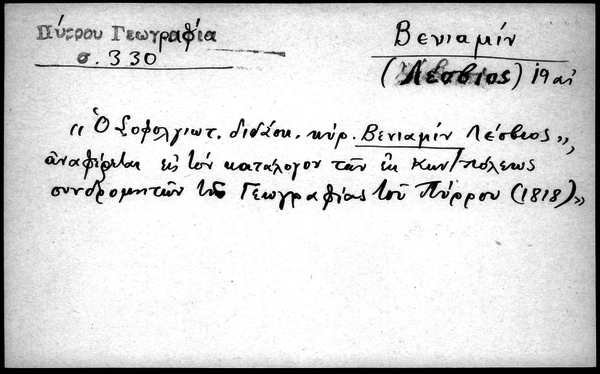 Πύρρου Γεωγραφία
σ. 330
Βενιαμίν
(Λέσβιος) 19 αἰ
„ Ὁ Σοφολγιωτ. διδάσκ. κύρ. Βενιαμίν Λέσβιος„,
ἀναφέρεται εἰς τόν κατάλογον τῶν ἐκ Κων/πόλεως
συνδρομητῶν τῆς Γεωγραφίας τοῦ Πύρρου (1818)»